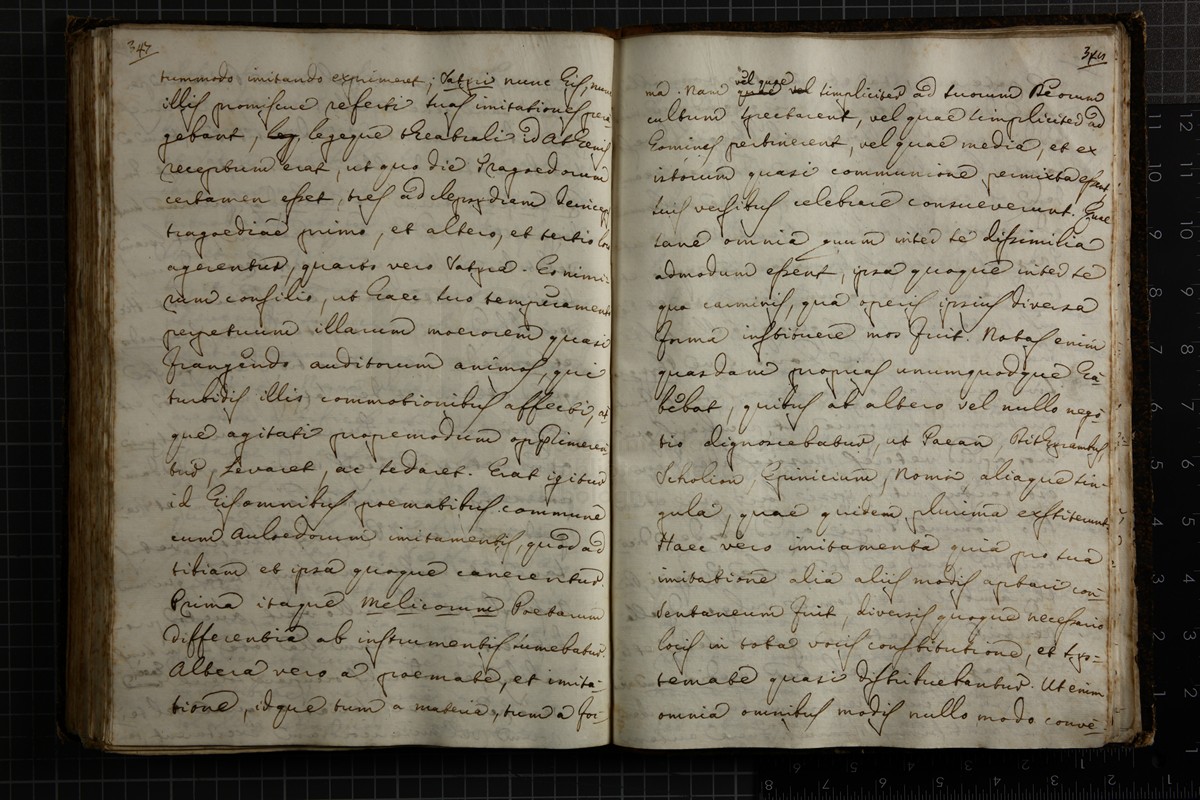 347
tummodo imitando exprimeret; Satyri nunc his, nunc
illis promiscue referti suas imitationes pera-
gebant, leg, legeque theatrali id Athenis
receptum erat, ut quo die Tragoedorum
certamen esset, tres ad clepsydram deincep
tragoediae primo, et altero, et tertio loco
agerentur, quarto vero Satyra. Eo nimi-
rum consilio, ut haec suo temperamento
perpetuum illarum moerorem quasi
frangendo auditorum animos, qui
turbidis illis commotionibus affecti, at-
que agitati propemodum opprimeren-
tur, levaret, ac sedaret. Erat igitur
id his omnibus poematibus commune
cum Auloedorum imitamentis, quod ad
tibiam et ipsa quoque canerentur.
Prima itaque Melicorum Poetarum
differentia ab instrumentis sumebatur.
Altera vero a poemate, et imita-
tione, idque tum a materia, tum a for-
348
ma. Nam vel quae simpliciter ad suorum Deorum
cultum spectarent, vel quae simpliciter ad
homines pertinerent, vel quae media, et ex
istorum quasi communione permixta essent
suis versibus celebrare consueverunt. Quae
sane omnia quum inter se dissimilia
admodum essent, ipsa quoque inter se
qua carminis, qua operis ipsius diversa
forma instituere mos fuit. Notas enim
quasdam proprias unumquodque ha-
bebat, quibus ab altero vel nullo nego-
tio dignoscebatur, ut Paean, Dithyrambus
Scholion, Epinicium, Nomia aliaque sin-
gula, quae quidem plurima exstiterunt.
Haec vero imitamenta quia pro sua
imitatione alia aliis modis aptari con-
sentaneum fuit, diversis quoque necessario
locis in tota vocis constitutione, et sys-
temate quasi distribuebantur. Ut enim
omnia omnibus modis nullo modo conve-